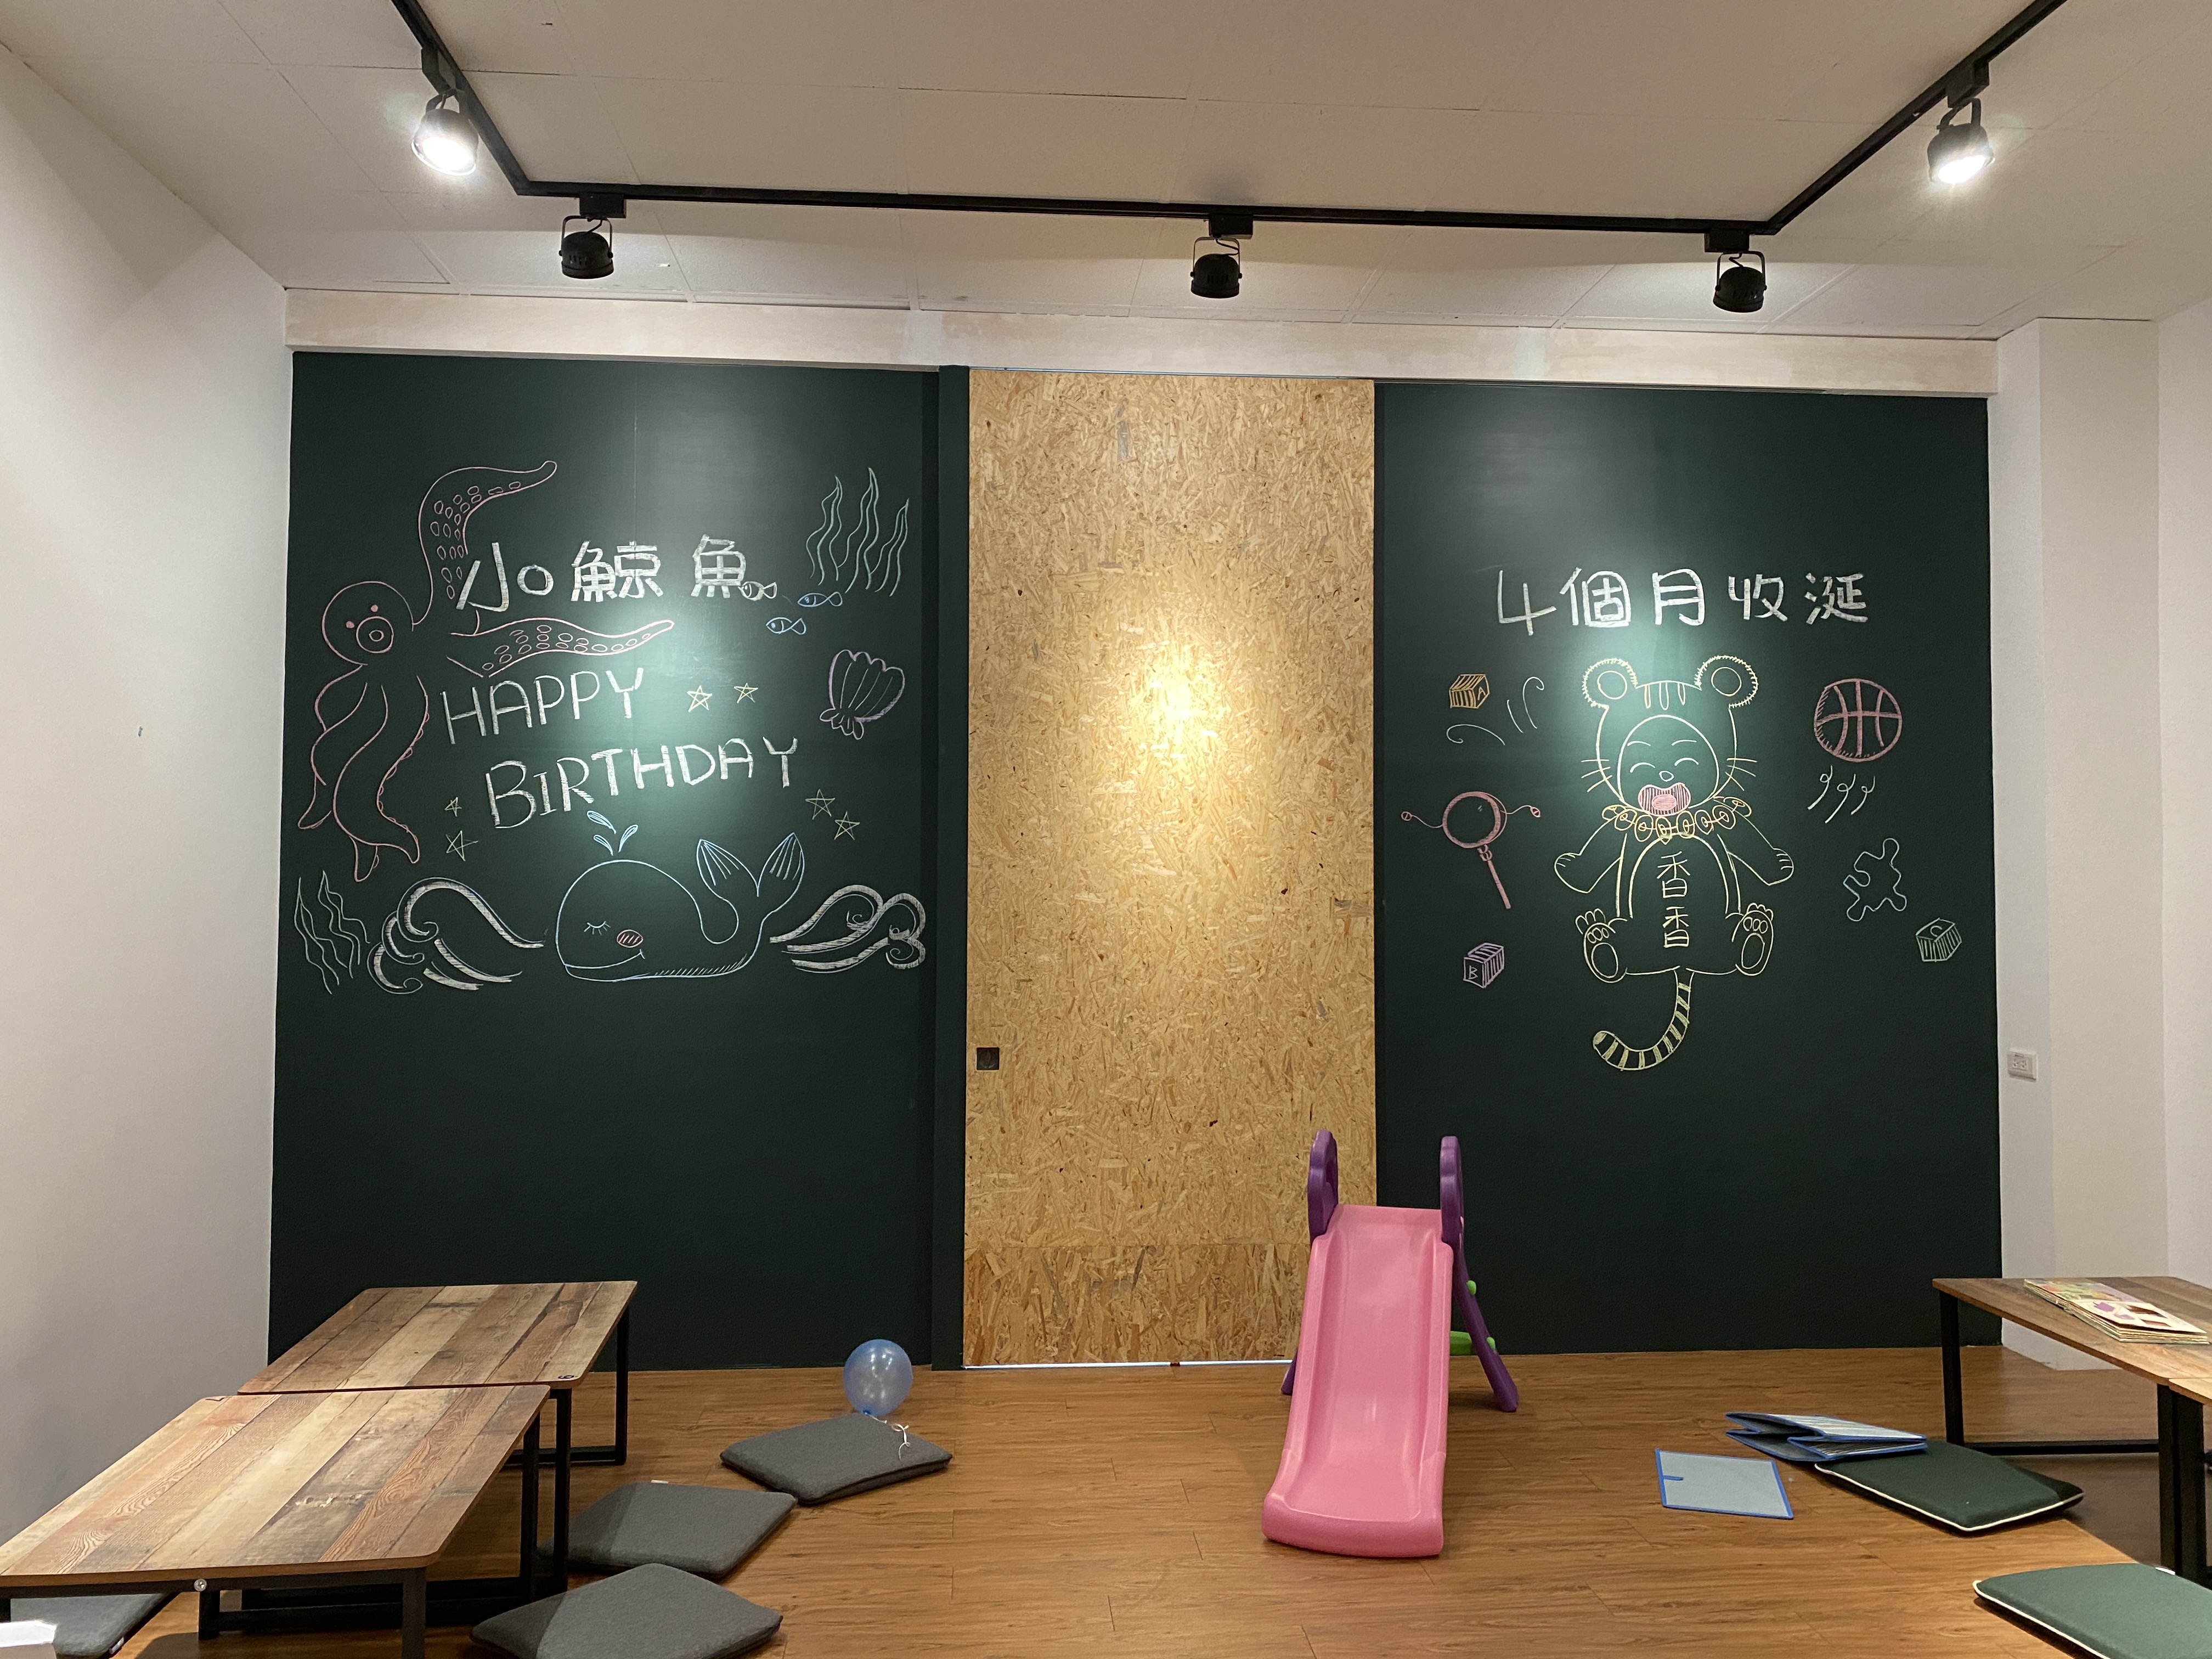 小鯨魚
HAPPY
BIRTHDAY
4個月收涎
A
香
香
B
C